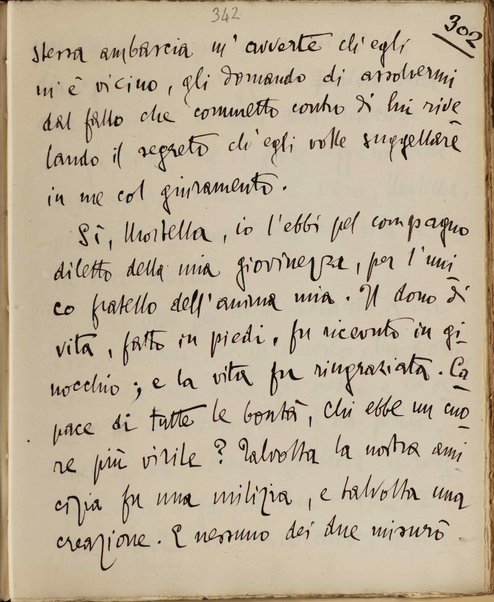 342
302
stessa ambascia m'avverte ch'egli
m'è vicino, gli domando di assolvermi
dal fallo che commetto contro di lui rive
lando il segreto ch'egli volle suggellare
in me col giuramento.
Sì, Mortella, io l'ebbi pel compagno
diletto della mia giovinezza, per l'uni
co fratello dell'anima mia. Il dono di
vita, fatto in piedi, fu ricevuto in gi-
nocchio; e la vita fu ringraziata. Ca
pace di tutte le bontà, chi ebbe un cuo
re più virile? Talvolta la nostra ami
cizia fu una milizia, e talvolta una
creazione. E nessuno dei due misurò